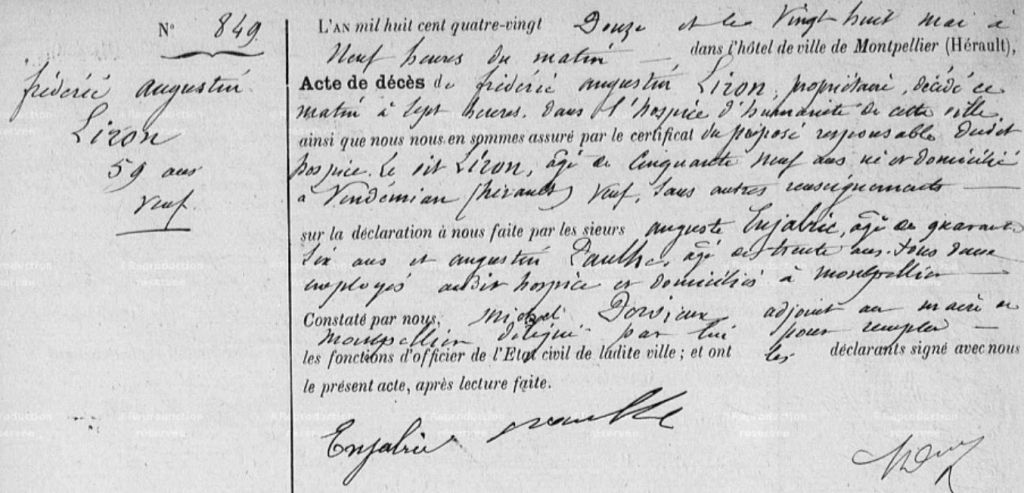 N° 849
frédéric augustin
Liron
59 ans
veuf
L'AN mil huit cent quatre-vingt Douze et le Vingt huit mai à
Neuf heures du matin dans l'hôtel de ville de Montpellier (Hérault),
Acte de décès de frédéric augustin Liron, propriétaire, décédé ce
matin à sept heures. dans l'hospice d'humanité de cette ville
ainsi que nous nous en sommes assuré par le certificat du préposé responsable dudit
hospice. Le dit Liron, âgé de Cinquante neuf ans né et domicilié
à Vendémian (hérault) veuf, Sans autres renseignements
sur la déclaration à nous faite par les sieurs auguste Enjalric, âgé de quarante
Six ans et augustin Paulhe, âgé de trente ans. tous deux
employés audit hospice et domiciliés à montpellier
Constaté par nous, michel adjoint au maire de
montpellier délégué par lui pour remplir
les fonctions d'officier de l'Etat civil de ladite ville ; et ont les déclarants signé avec nous
le présent acte, après lecture faite.
Enjalric Paulhe